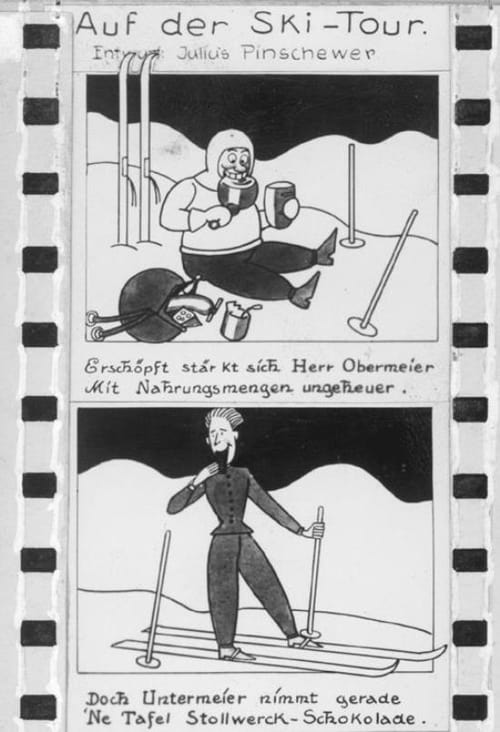 Auf der Ski-Tour.
Entwurf: Julius Pinschewer
Erschöpft stärkt sich Herr Obermeier
Mit Nahrungsmengen ungeheuer.
Doch Untermeier nimmt gerade
'Ne Tafel Stollwerck-Schokolade.